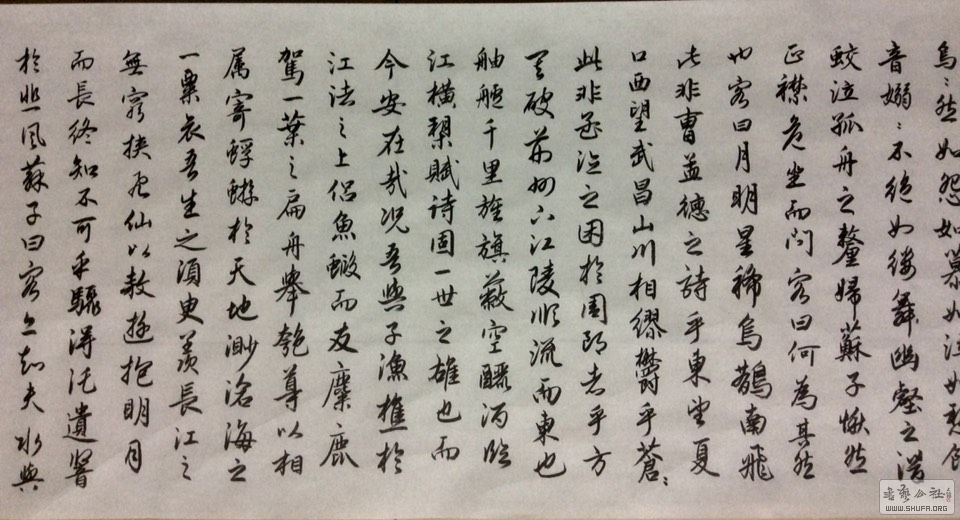 烏〻然如怨如慕如泣如訴餘
音嫋〻不絕如縷舞幽壑之潛
蛟泣孤舟之嫠婦蘇子愀然
正襟危坐而問客曰何為其然
也客曰月明星稀烏鵲南飛
此非曹孟德之詩乎東望夏
口西望武昌山川相繆鬱乎蒼〻
此非孟德之困於周郎者乎方
其破荊州下江陵順流而東也
舳艫千里旌旗蔽空釃酒臨
江橫槊賦詩固一世之雄也而
今安在哉況吾與子漁樵於
江渚之上侶魚蝦而友麋鹿
駕一葉之扁舟舉匏尊以相
屬寄蜉蝣於天地渺滄海之
一粟哀吾生之須臾羨長江之
無窮挾飛仙以遨遊抱明月
而長終知不可乎驟得託遺響
於悲風蘇子曰客亦知夫水與
書藝公社
WWW.SHUFA.ORG